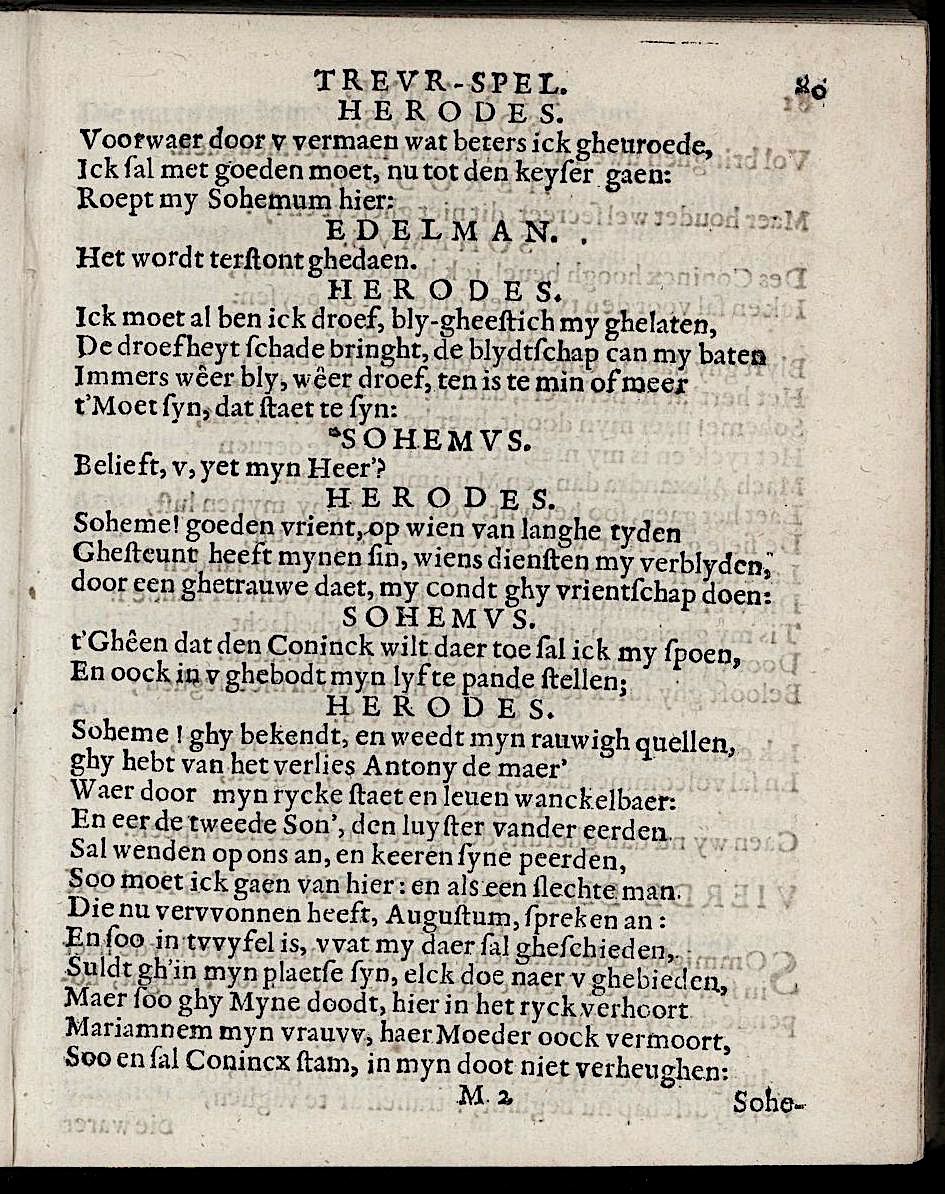 TREVR-SPEL. 80
HERODES.
Voorwaer door v vermaen wat beters ick gheuroede,
Ick ſal met goeden moet, nu tot den keyſer gaen:
Roept my Sohemum hier:
EDELMAN.
Het wordt terſtont ghedaen.
HERODES.
Ick moet al ben ick droef, bly-gheeſtich my ghelaten,
De droefheyt ſchade bringht, de blydtſchap can my baten
Immers wêer bly, wêer droef, ten is te min of meer
t'Moet ſyn, dat ſtaet te ſyn:
SOHEMVS.
Belieft, v, yet myn Heer'?
HERODES.
Soheme! goeden vrient, op wien van langhe tyden
Gheſteunt heeft mynen ſin, wiens dienſten my verblyden,
door een ghetrauwe daet, my condt ghy vrientſchap doen:
SOHEMVS.
t'Ghêen dat den Coninck wilt daer toe ſal ick my ſpoen,
En oock in v ghebodt myn lyf te pande ſtellen;
HERODES.
Soheme! ghy bekendt, en weedt myn rauwigh quellen,
ghy hebt van het verlies Antony de maer'
Waer door myn rycke ſtaet en leuen wanckelbaer:
En eer de tweede Son', den luyſter vander eerden
Sal wenden op ons an, en keeren ſyne peerden,
Soo moet ick gaen van hier: en als een ſlechte man
Die nu vervvonnen heeft, Auguſtum, ſpreken an:
En ſoo in tvvyfel is, vvat my daer ſal gheſchieden,
Suldt gh'in myn plaetſe ſyn, elck doe naer v ghebieden,
Maer ſoo ghy Myne doodt, hier in het ryck verhoort
Mariamnem myn vrauvv, haer Moeder oock vermoort,
Soo en ſal Conincx ſtam, in myn doot niet verheughen:
M. 2 Sohe-